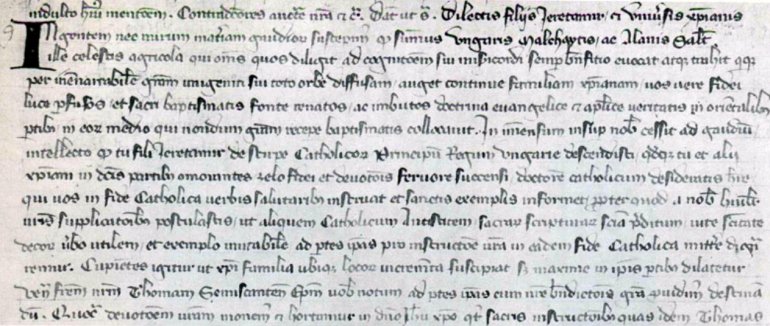 indulto huius mentionem. Contradictores auctoritate nostra etc. Dat ut s. Dilectis filiis Jeretamir, et universis xpianis
Ingentem nec mirum materiam gaudiorum suscepimus quod sumus Ungaris Malchaytis, ac Alanis Salt
ille celestis agricola qui omnes quos diligit ad cognitoem sui misericordi semp evocat atque trahit
per inenarrabilem gram unigeniti sui toto orbe diffusam, auget continue familiam xpianam, vos vere fidei
luce et sacri baptismatis fonte renatos, ac imbutos doctrina evangelice et aplice veritatis in orientalibus
partibus in eor medio qui nondum gram recepe baptismatis collocavit. In imensum insup nob cessit ad gaudium
intellecto quod tu fili Jeretamir de stirpe Catholicor Principum Regum Ungarie descendisti, quodque tu et alii
xpiani in dictis partibus omorantes zelo fidei et devotois fervore succensi, doctore catholicum desideratis here
qui vos in fide Catholica verbis salutaribus instruat et sanctis exemplis informet, propter quod a nob humil
nuis supplicatoib postulastis, ut aliquem Catholicum Antistitem sacrar scripturar scia preditum, vite
decor verbo utilem, et exemplo imitabile ad ptes ipas pro instructoe vra in eadem fide Catholica mittere
remur. Cupietes igitur ut xpi familia ubique locor incremta suscipiat et maxime in ipis ptib dilatetur
fratrem nrm Thomam Semiscantem Epm vob notum ad ptes ipas cum nre bndictois gra
Quoc devotoem vram monem et hortamur in dno Jhu xpo qt sacris instructoib quas idem Thomas